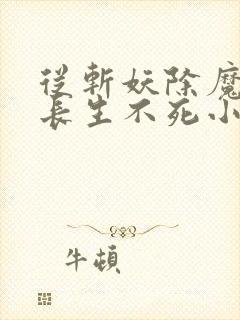 從斬妖除魔
長生不死小
牛頓